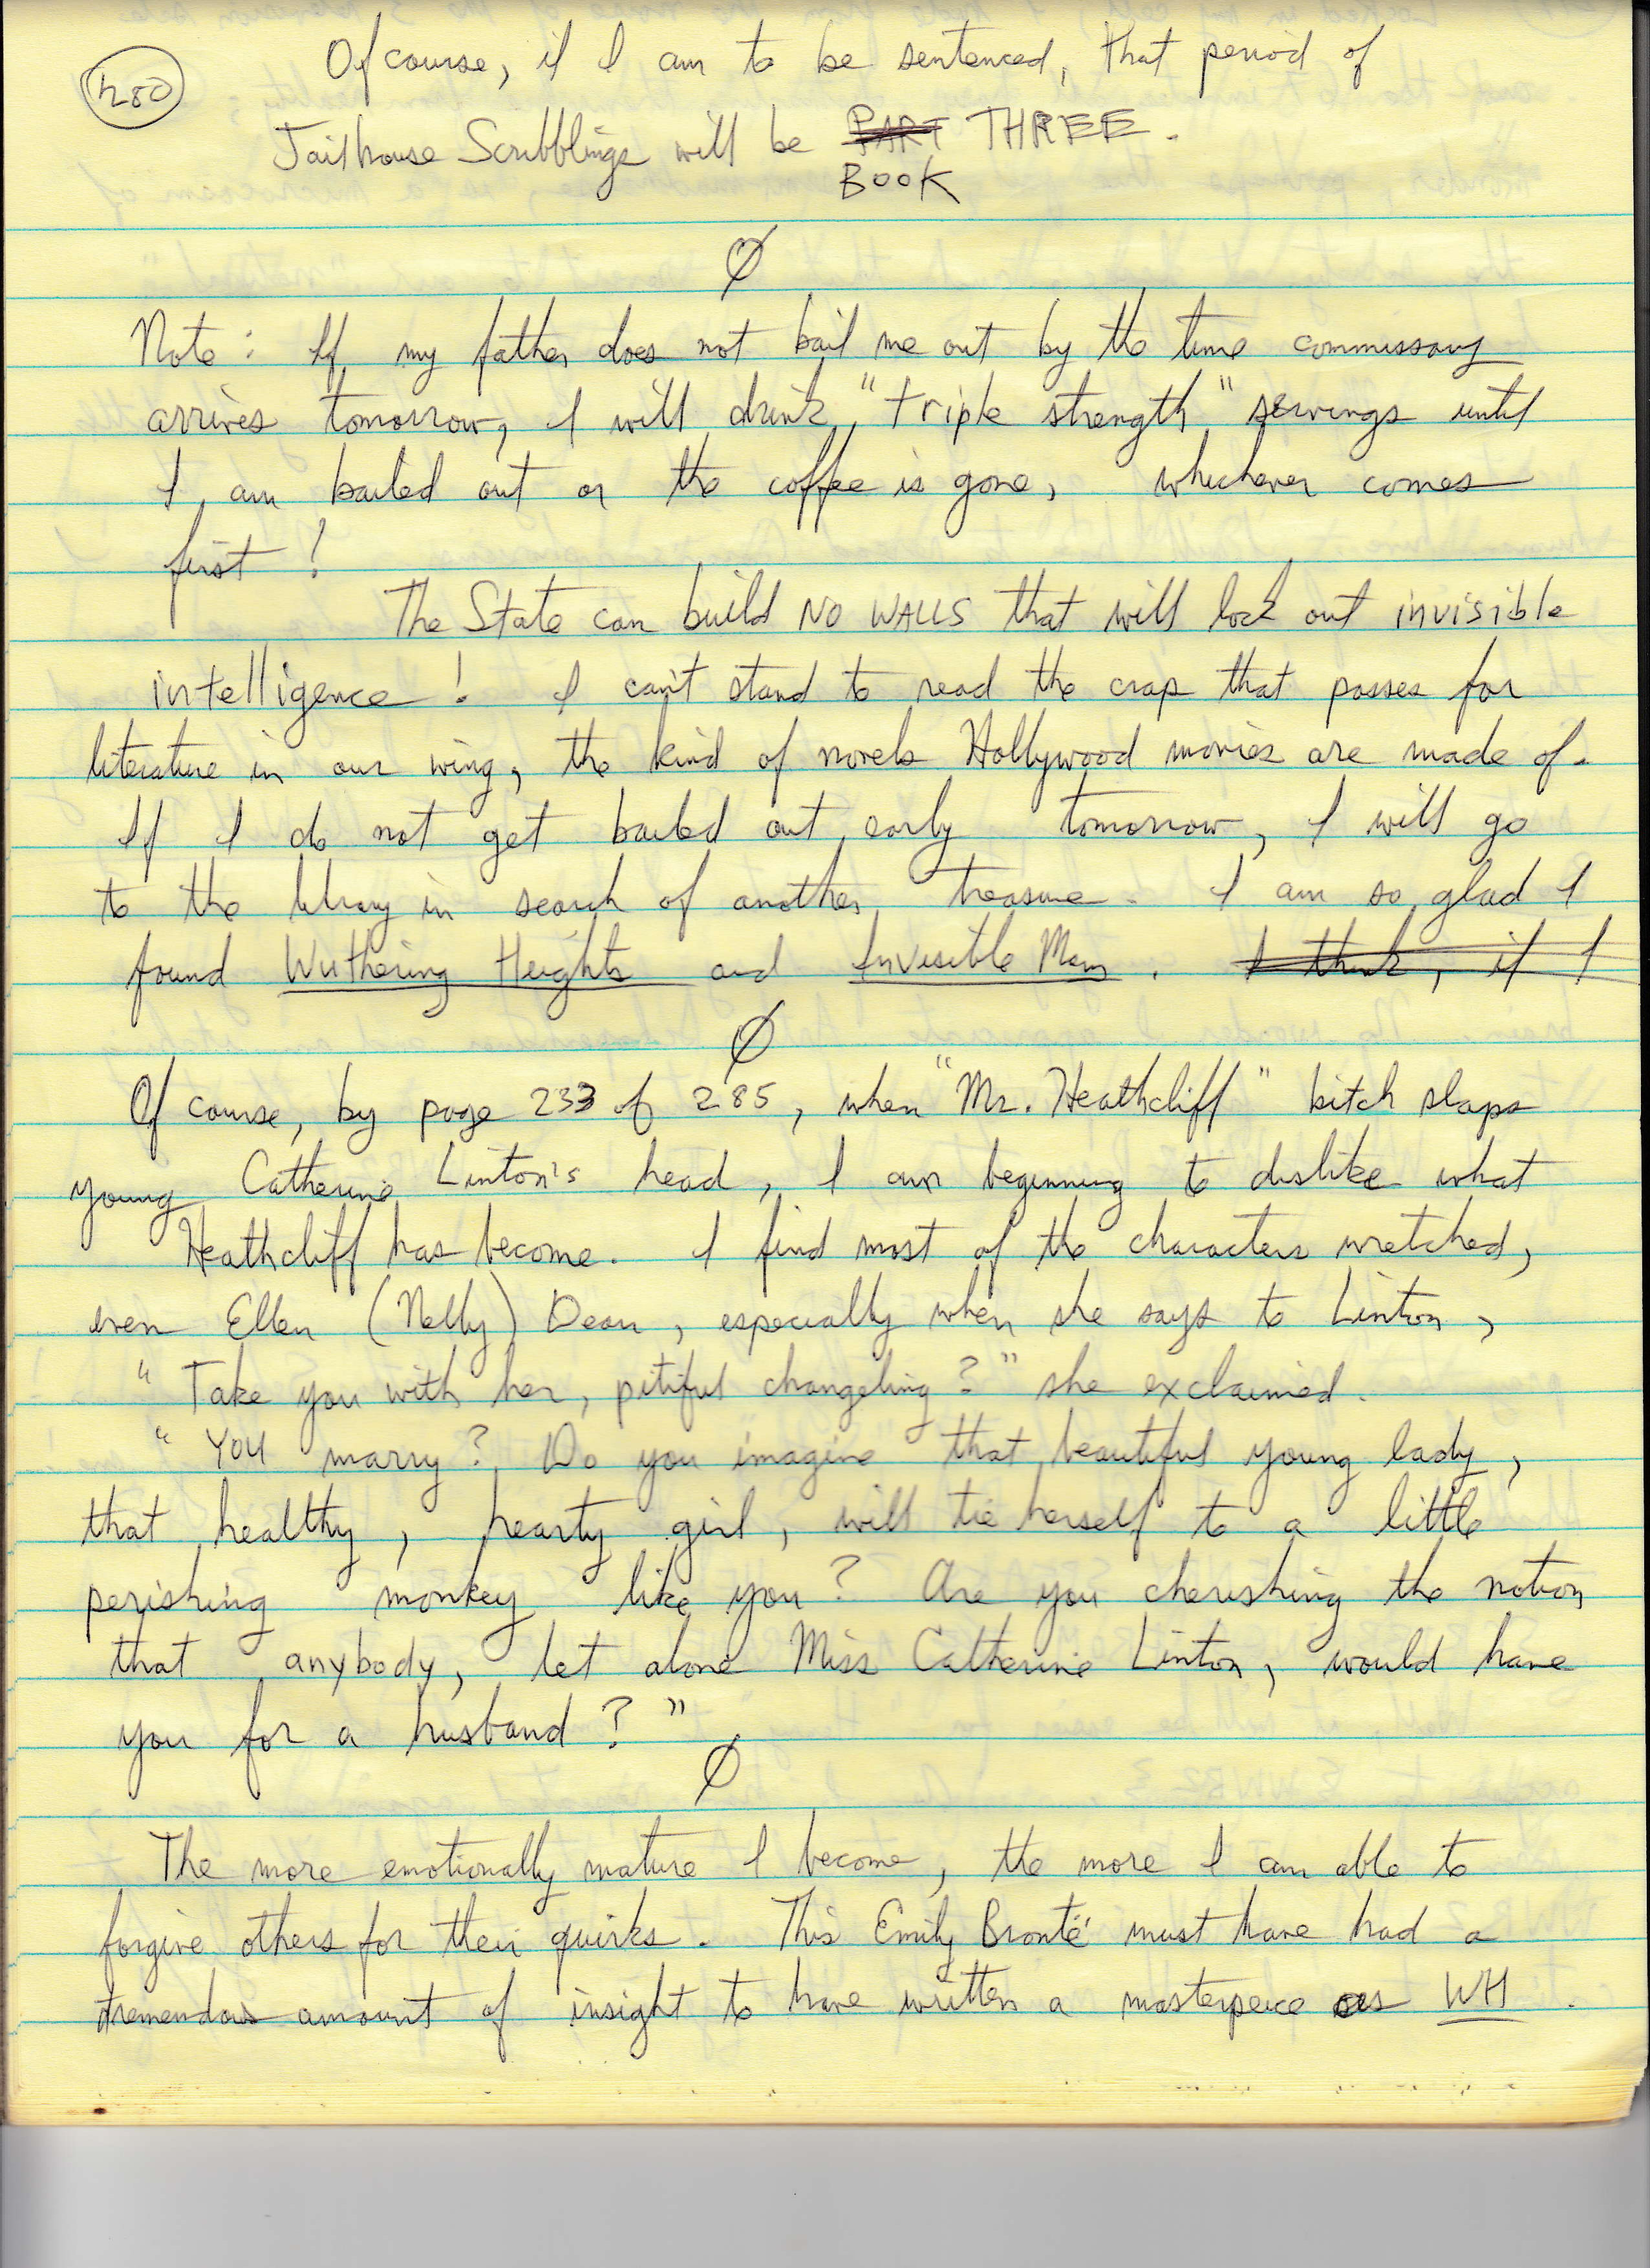 480
Of course, if I am to be sentenced, that period of
Jailhouse Scribblings will be PART THREE.
BOOK
Ø
Note: If my father does not bail me out by the time commissary
arrives tomorrow, I will drink "triple strength" servings until
I am bailed out or the coffee is gone, whichever comes
first!
The State can build NO WALLS that will lock out invisible
intelligence! I can't stand to read the crap that passes for
literature in our wing, the kind of novels Hollywood movies are made of.
If I do not get bailed out early tomorrow, I will go
to the library in search of another treasure. I am so glad I
found Wuthering Heights and Invisible Man. I think, if I
Ø
Of course, by page 233 of 285, when "Mr. Heathcliff" bitch slaps
young Catherine Linton's head, I am beginning to dislike what
Heathcliff has become. I find most of the characters wretched,
even Ellen (Nelly) Dean, especially when she says to Linton,
"Take you with her, pitiful changeling?" she exclaimed.
"YOU marry? Do you imagine that beautiful young lady,
that healthy, hearty girl, will tie herself to a little
perishing monkey like you? Are you cherishing the notion
that anybody, let alone Miss Catherine Linton, would have
you for a husband?"
Ø
The more emotionally mature I become, the more I am able to
forgive others for their quirks. This Emily Brontë must have had a
tremendous amount of insight to have written a masterpeice as WH.